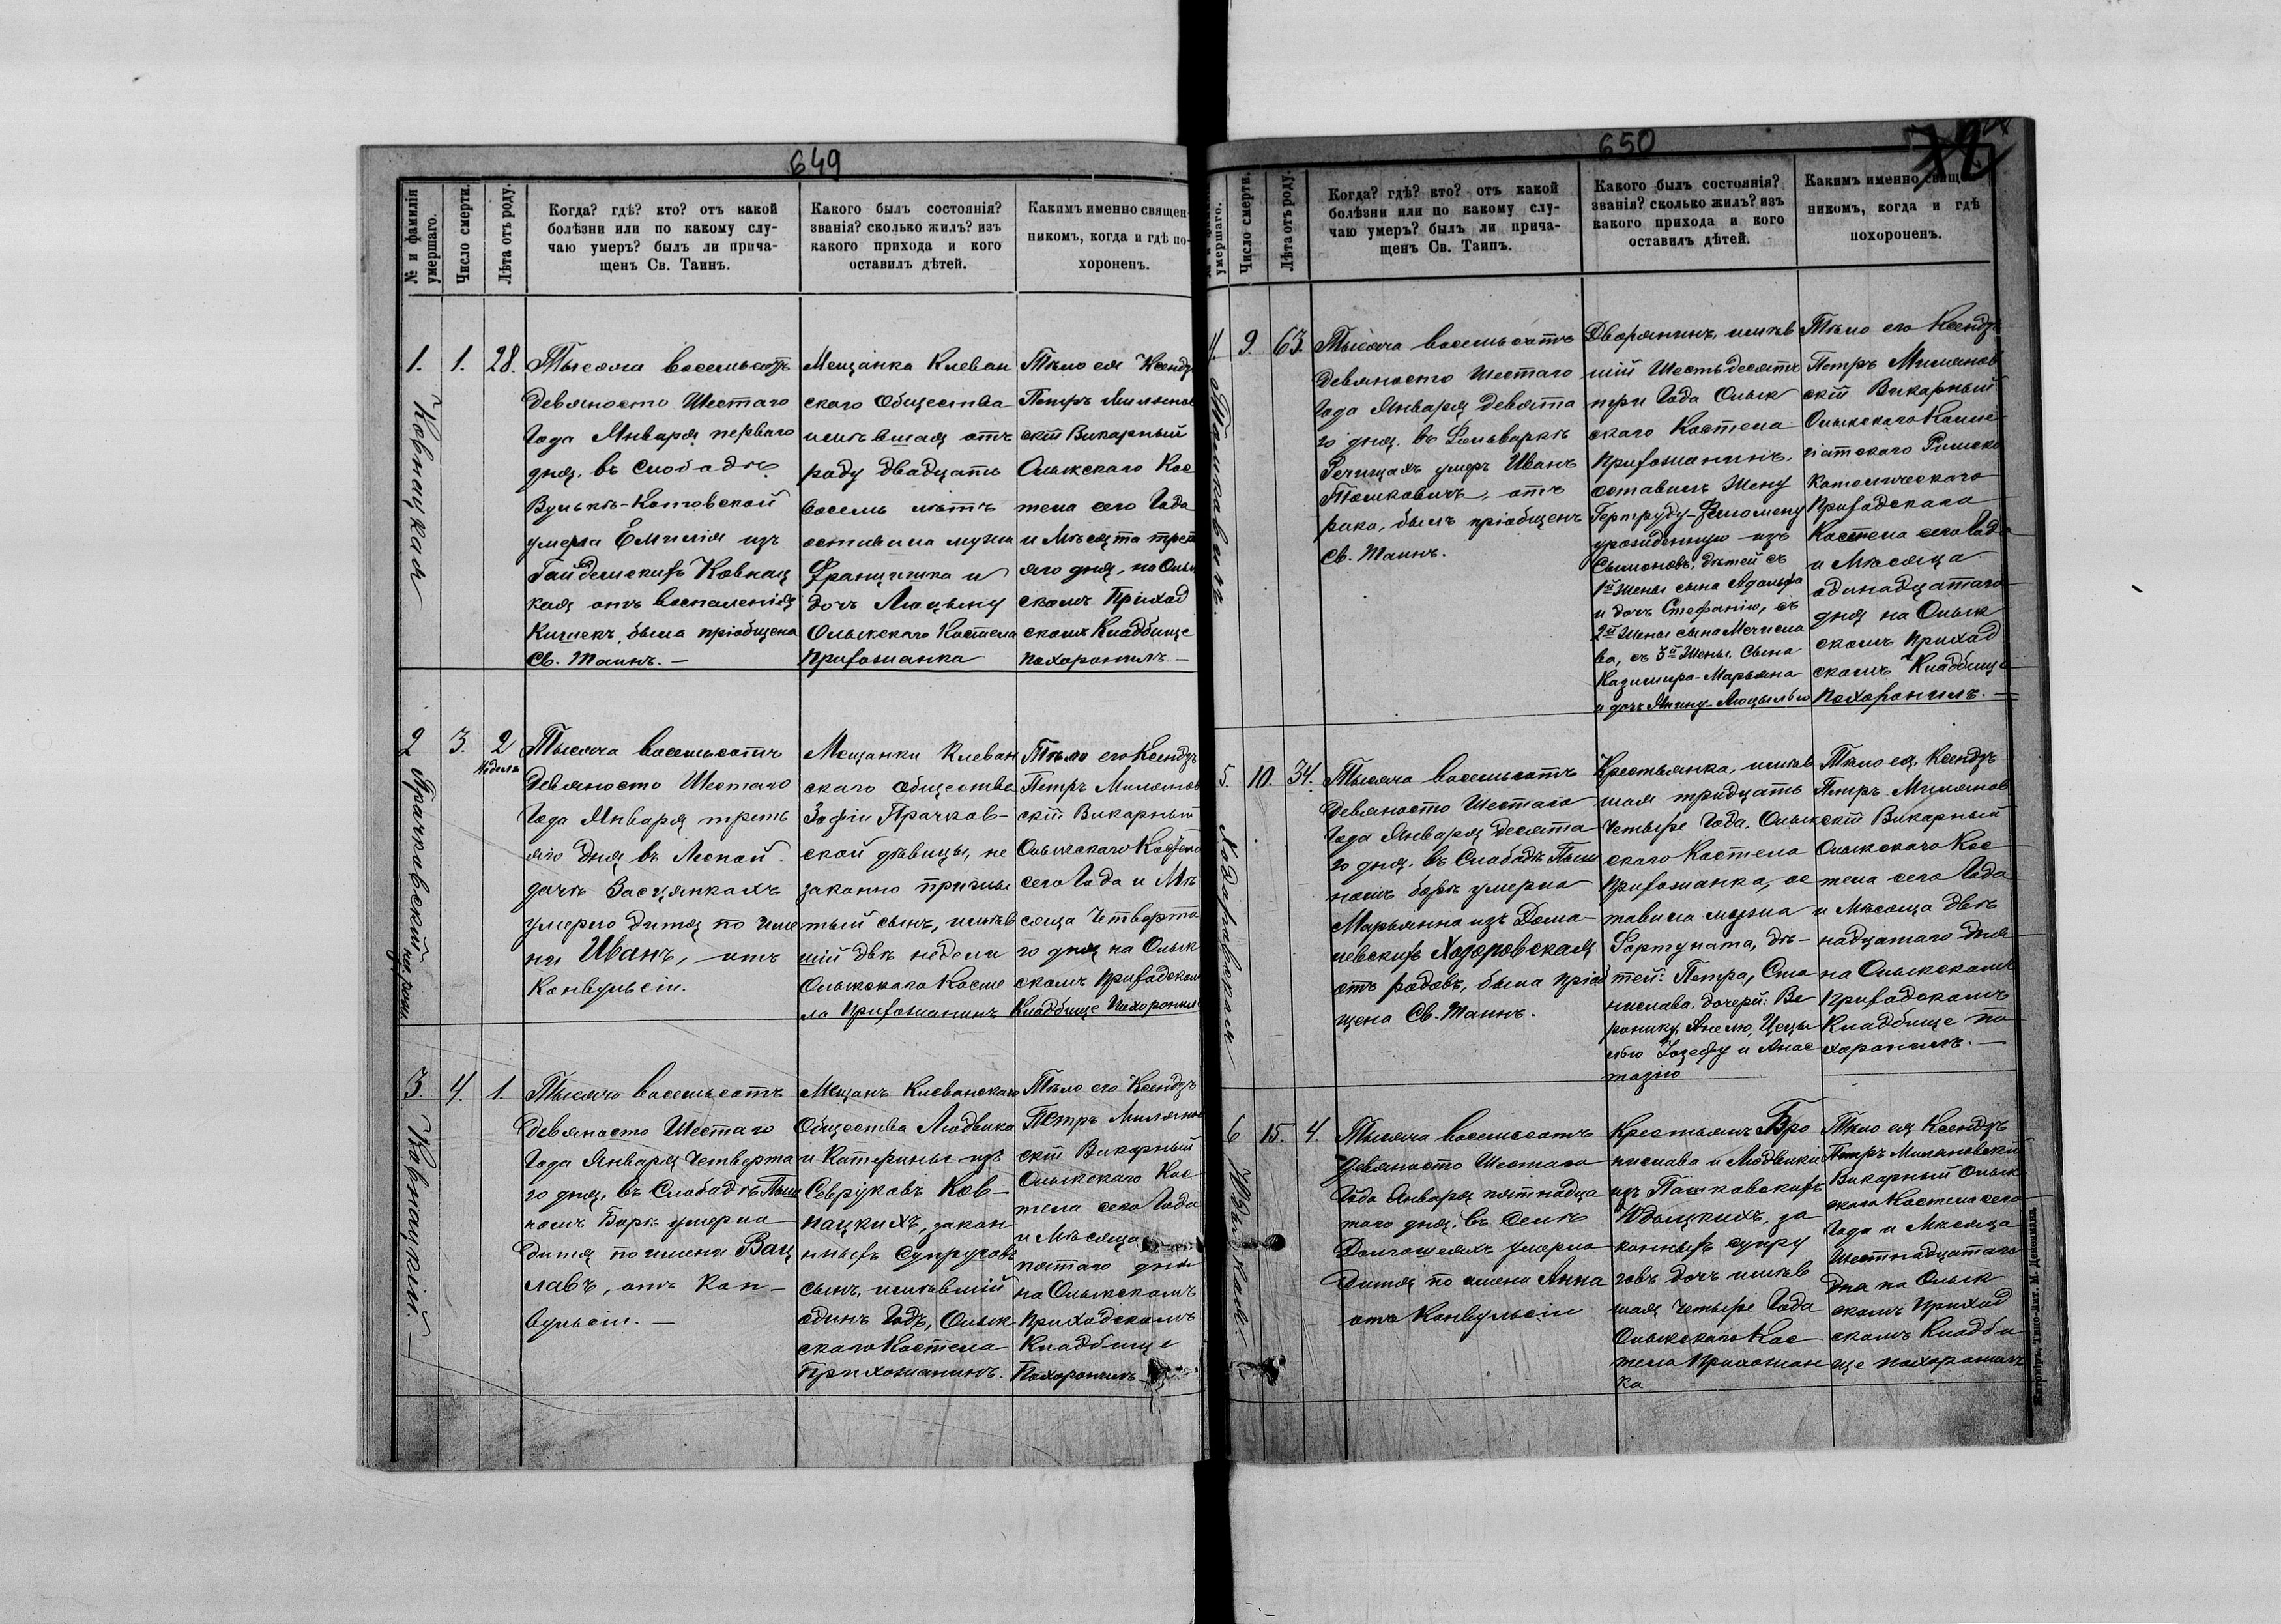 649
№ и фамилія умершаго.
Число смерти.
Лѣта отъ роду.
Когда? гдѣ? кто? отъ какой
болѣзни или по какому слу-
чаю умеръ? былъ ли прича-
щенъ Св. Таинъ.
Какого былъ состоянія?
званія? сколько жилъ? изъ
какого прихода и кого
оставилъ дѣтей.
Какимъ именно священ-
никомъ, когда и гдѣ по-
хороненъ.
1.
Ковнацкая
1.
28.
Тысяча восемьсотъ
Девяносто Шестаго
Года Января перваго
дня, въ слободѣ
Вулькѣ-Котовской
умерла Емилія изъ
Ковнац
кая отъ воспаленія
Кишекъ, была пріобщена
Св. Таинъ. —
Мещанка Клеван
скаго Общества
имѣвшая отъ
роду двадцать
восемь лѣтъ
оставила мужа
Францишка и
дочъ Люцыну
Олыкскаго Костела
Прихожанка
Тѣло ея Ксендз
Петръ Милянов
скій Викарный
Олыкскаго Кос
тела сего Года
и Мѣсяца трет
яго дня, на Олы
скомъ Приход
скомъ Кладбище
похоронилъ —
2
Прачковскій
3.
2
Недели
Тысяча восемьсотъ
Девяносто Шестаго
Года Января треть
яго Дня въ
Засцянкахъ
умерло дитя по име
ни Иванъ, отъ
Конвульсіи.
Мещанки Клеван
скаго Общества
Зофіи Прачков-
ской дѣвицы, не
законно прижи
тый сынъ, имѣв
шій двѣ недели
Олыкскаго Косте
ла Прихожанинъ
Тѣло его Ксендзъ
Петръ Милянов
скій Викарный
Олыкскаго Костела
сего Года и Мѣ
сяца Четверта
го дня на Олык
скомъ Приходском
Кладбище Похоронилъ
3.
Ковнацкій. —
4.
1.
Тысяча восемьсотъ
Девяносто Шестаго
Года Января Четверта
го дня, въ Слободѣ Пыш
номъ Борѣ умерло
дитя по имени Вац
лавъ, отъ Кон-
вульсіи. —
Мещанъ Клеванскаго
Общества Людвика
и Катерины изъ
Севруковъ Ков-
нацкихъ, закон
ныхъ Супруговъ
сынъ, имѣвшій
одинъ Годъ, Олык
скаго Костела
Прихожанинъ.
Тѣло его Ксендзъ
Петръ Милянов
скій Викарный
Олыкскаго Кос
тела сего Года
и Мѣсяца
пятаго дня
на Олыкскомъ
Приходскомъ
Кладбище
Похоронилъ
650
умершаго.
Число смерти.
Лѣта отъ роду.
Когда? гдѣ? кто? отъ какой
болѣзни или по какому слу-
чаю умеръ? былъ ли прича-
щенъ Св. Таинъ.
Какого былъ состоянія?
званія? сколько жилъ? изъ
какого прихода и кого
оставилъ дѣтей.
Какимъ именно свяще
никомъ, когда и гдѣ
похороненъ.
4.
9.
63.
Тысяча восемьсотъ
Девяносто Шестаго
Года Января Девята
го дня, въ Фольваркѣ
Речищахъ умеръ Иванъ
отъ
рака, былъ пріобщенъ
Св. Таинъ.
Дворянинъ, имѣв
шій Шестьдесятъ
три Года Олык
скаго Костела
Прихожанинъ,
оставилъ Жену
Гертруду-Филомену
урожденную изъ
Сымоновъ, Дѣтей съ
1й Жены сына Адольфа
и дочъ Стефанію, съ
2й Жены сына Мечисла
ва, съ 3й Жены Сына
Казимира-Марьяна
и дочъ Янину-Люцылью
Тѣло его Ксендзъ
Петръ Милянов
скій Викарный
Олыкскаго Колле
гіатскаго Римско
Католическаго
Приходскаго
Костела сего Года
и Мѣсяца
одинадцатаго
дня на Олык
скомъ Приход
скомъ Кладбище
Похоронилъ. —
5.
Ходоровская
10.
34.
Тысяча восемьсотъ
Девяносто Шестаго
Года Января Десята
го дня, въ Слободѣ Пыш
номъ борѣ умерла
Марьянна изъ Дома-
невскихъ Ходоровская
отъ родовъ, была пріоб
щена Св. Таинъ.
Крестьянка, имѣв
шая тридцать
Четыре Года, Олык
скаго Костела
Прихожанка, ос
тавила мужа
Фортуната, дѣ-
тей: Петра, Ста
нислава, дочерей: Ве
ронику, Анелю, Цецы
лью Юзефу и Анас
тазію
Тѣло ея, Ксендзъ
Петръ Милянов
скій Викарный
Олыкскаго Кос
тела сего Года
и Мѣсяца двѣ
надцатаго дня
на Олыкскомъ
Приходскомъ
Кладбище по
хоронилъ. —
6
15.
4.
Тысяча восемьсотъ
Девяносто Шестаго
Года Января пятнадца
таго дня, въ Селѣ
Долгошеяхъ умерло
Дитя по имени Анна
отъ Конвульсіи
Крестьянъ Бро
нислава и Людвики
изъ Пашковскихъ
за
конныхъ супру
говъ дочъ имѣв
шая Четыре Года
Олыкскаго Кос
тела Прихожан
ка
Тѣло ея Ксендзъ
Петръ Миляновскій
Викарный Олык
скаго Костела сего
Года и Мѣсяца
Шестнадцатаго
Дня на Олык
скомъ Приход
скомъ Кладби
ще похоронилъ
Житоміръ, Типо-Лит. М. Дененмана